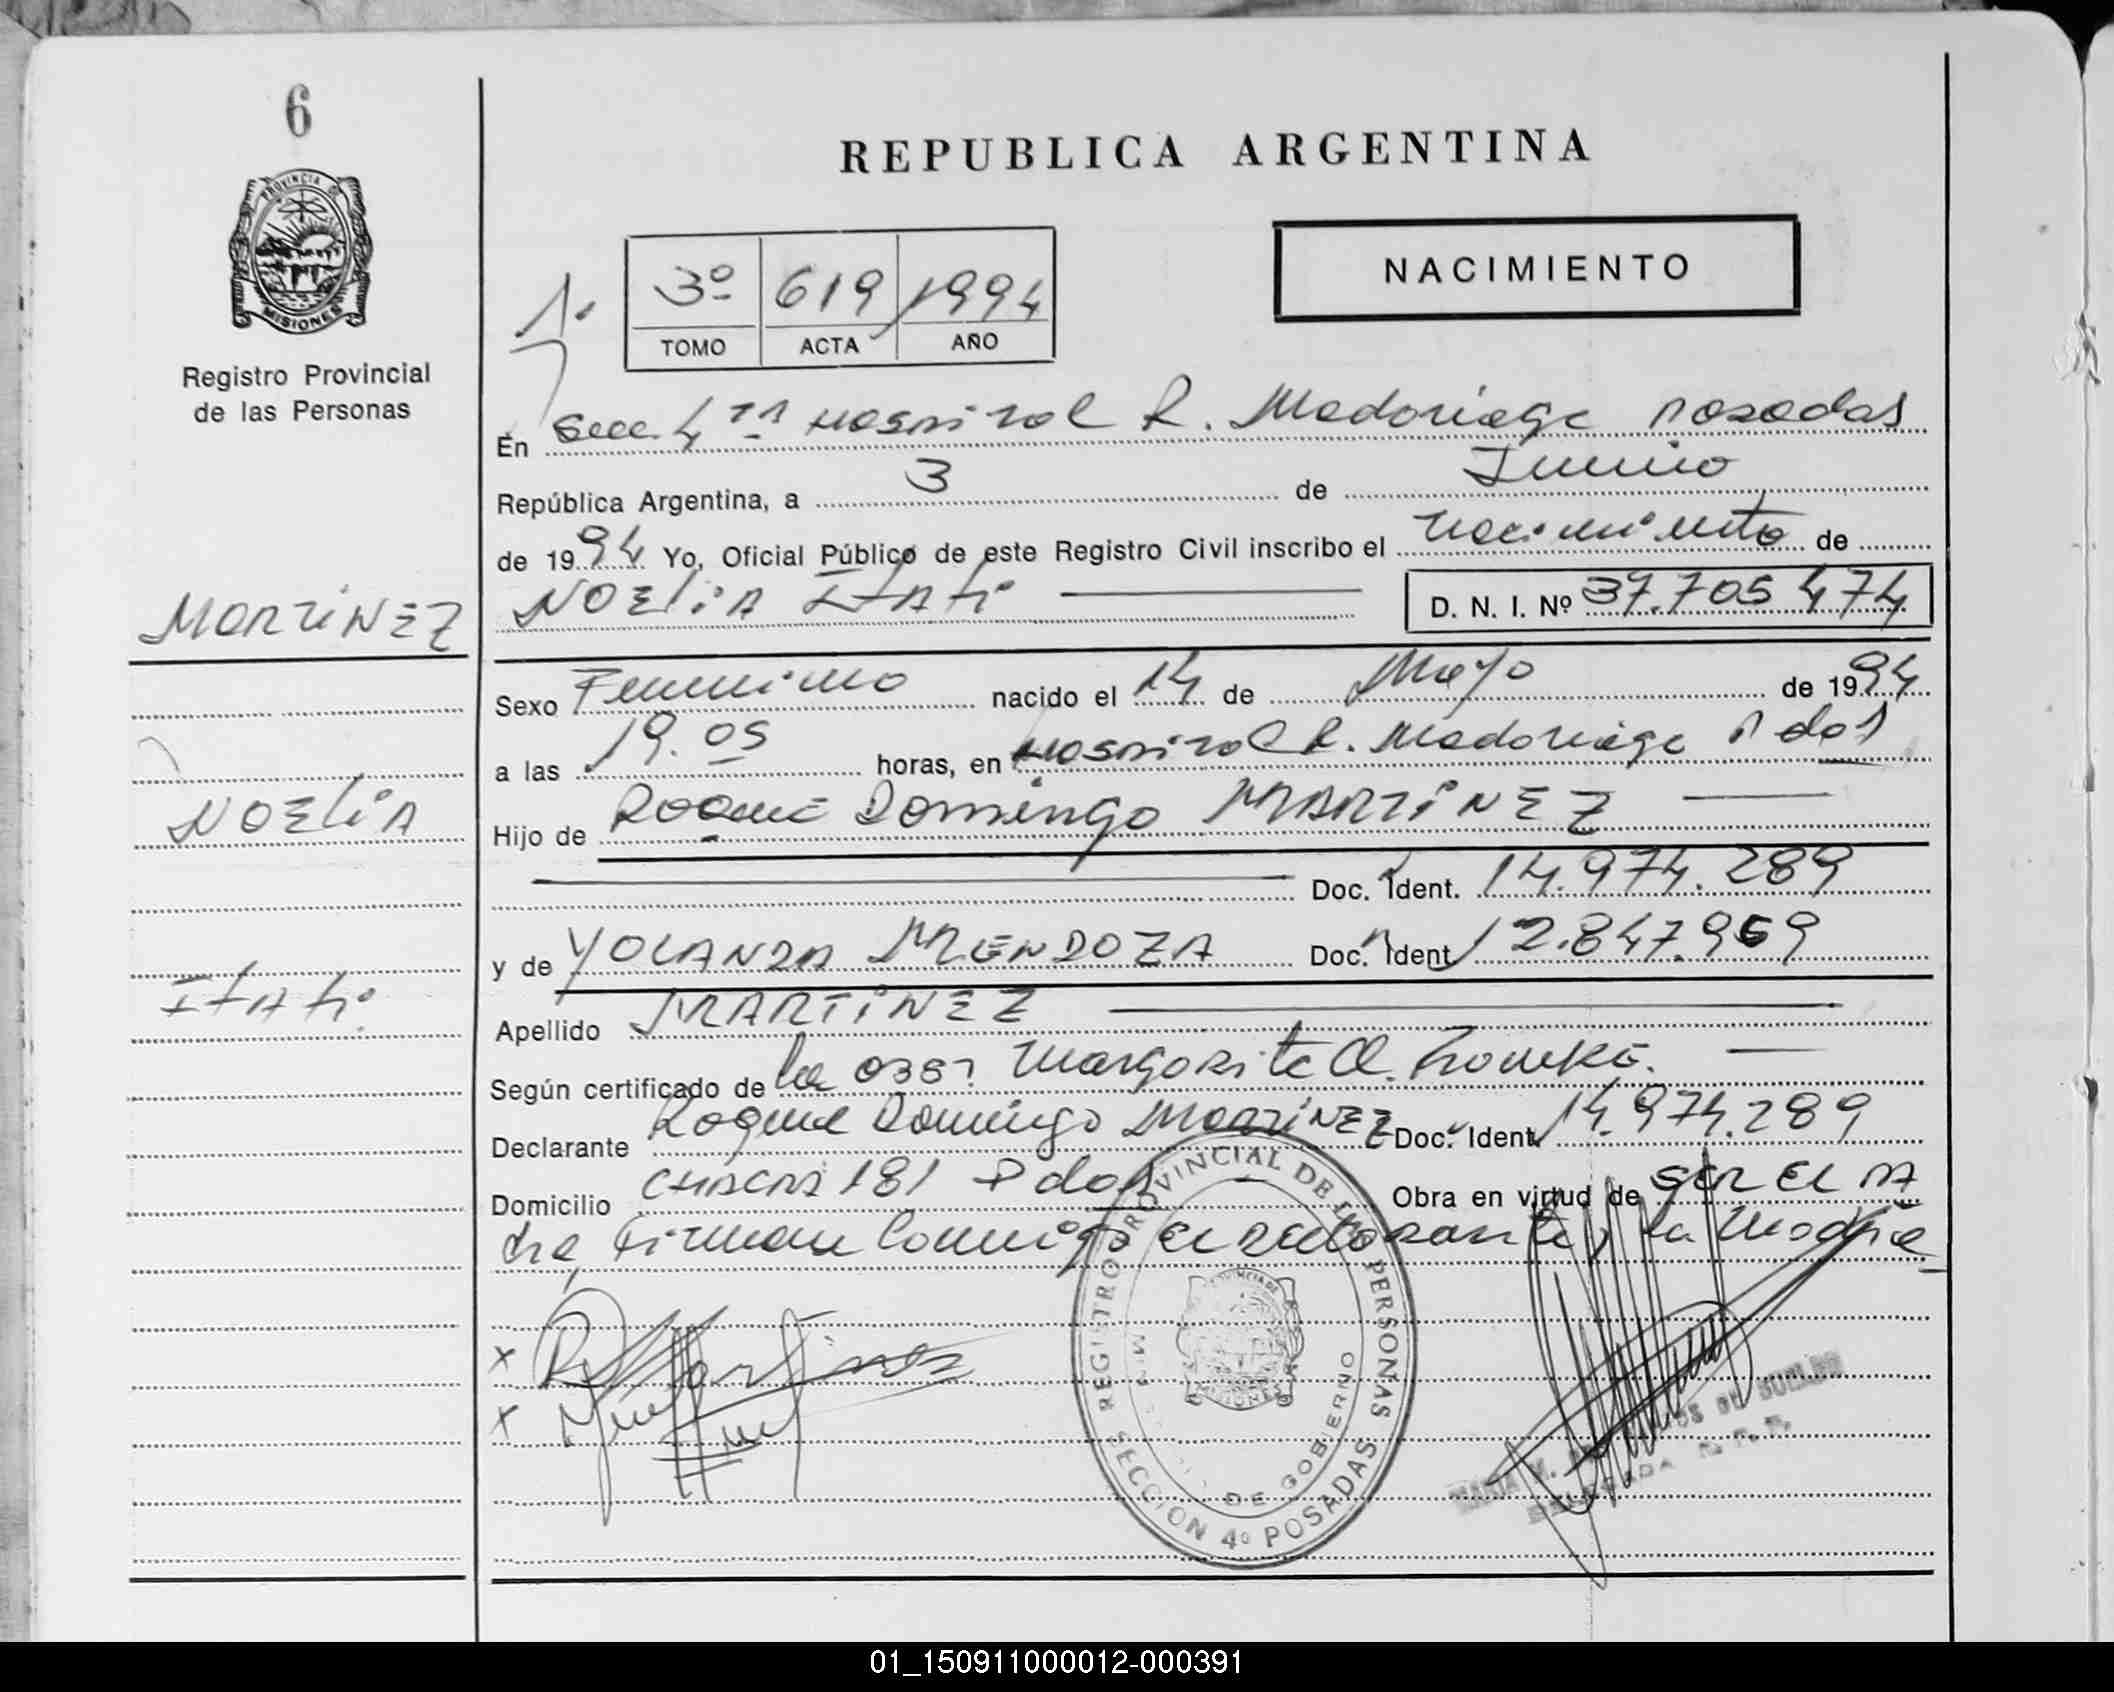 6
REPUBLICA ARGENTINA
PROVINCIA DE
MISIONES
Registro Provincial
de las Personas
3º 619 1994
TOMO ACTA AÑO
NACIMIENTO
En Secc. 4ta Hospital R. Madariaga Posadas
República Argentina, a 3 de Junio
de 1994 Yo, Oficial Público de este Registro Civil inscribo el nacimiento de
NOELIA ITATI
D. N. I. Nº 37.705 474
MARTINEZ
NOELIA
ITATI
Sexo Femenino nacido el 14 de Mayo de 1994
a las 19.05 horas, en Hospital R. Madariaga Pdas
Hijo de Roque Domingo MARTINEZ
Doc. Ident. 14.974.289
y de YOLANDA MENDOZA Doc. Ident 12.847.969
Apellido MARTINEZ
Según certificado de la Obst Margarita
Declarante Roque Domingo MARTINEZ Doc. Ident. 14.974.289
Domicilio CHACRA 181 Pdas Obra en virtud de SER EL PA
dre, Firman Conmigo el declarante y la Madre
x
x
REGISTRO PROVINCIAL DE LAS PERSONAS
SECCION 4º POSADAS
DE GOBIERNO
MISIONES
01_150911000012-000391